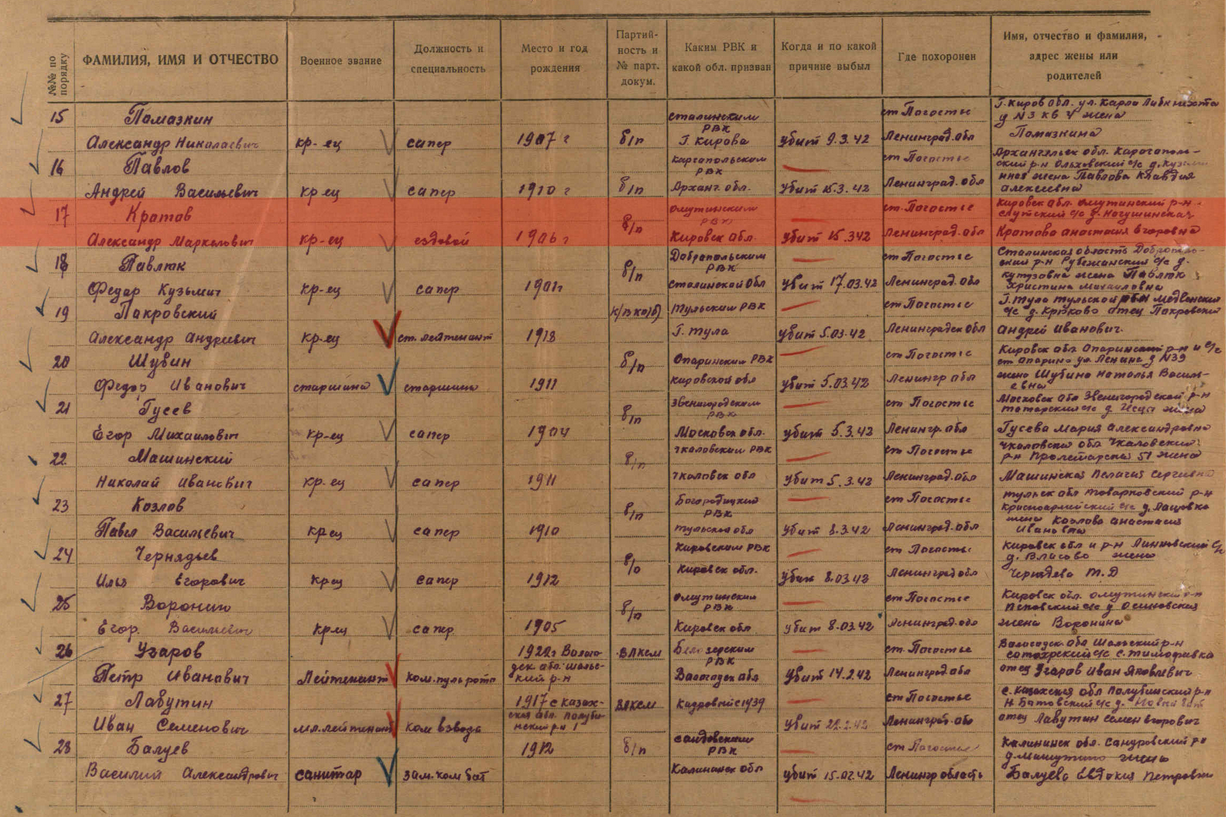 №№ по порядку
ФАМИЛИЯ, ИМЯ И ОТЧЕСТВО
Военное звание
Должность и специальность
Место и год рождения
Партийность и № парт. докум.
Каким РВК и какой обл. призван
Когда и по какой причине выбыл
Где похоронен
Имя, отчество и фамилия, адрес жены или родителей
15 Помазкин сталинским РВК ст Погостье Г. Киров обл. ул. Карла Либкнехта д N3 кв 4 жена
Александр Николаевич кр-ец сапер 1907 г б/п Г. Кирова убит 9.3.42 Ленинград. обл Помазкина
16 Павлов Каргапольским РВК ст Погостье Архангельск обл. Карогополь-ский р-н Ольховский с/с д.
Андрей Васильевич кр-ец сапер 1910 г б/п Арханг. обл. убит 15.3.42 Ленинград. обл жена Павлова Клавдия алексеевна
17 Кротов омутинским РВК ст Погостье Кировск обл. омутинский р-н с/о д.
Александр Маркелович кр-ец ездовой 1906 г б/п Кировск обл. убит 15.342 Ленинград. обл Кротова анастасия Егоровна
18 Павлюк Добропольским РВК ст Погостье Сталинская область р-н с/с д.
Федар Кузьмич кр-ец сапер 1901г б/п Сталинской Обл убит 17.03.42 Ленинград. обл кутузовка жена Павлюк Христина Михаиловна
19 Пакровский Тульским РВК ст Погостье Г. Тула Тульской обл с/с д. Крюково отец Покровский
Александр Андреевич кр-ец ст. лейтенант 1918 Г. Тула убит 5.03.42 Ленинградск обл Андрей Иванович.
20 Шувин Опаринским РВК ст Погостье Кировск обл Опаринский р-н и с/с ст Опарино ул Ленина д N39
Федор Иванович старшина старшина 1911 б/п Кировской обл убит 5.03.42 Ленингр обл жена Шубина Наталья Василь-евна
21 Гусев Звенигородским РВК ст Погостье Московск обл Звенигородской р-н с/с д. жена
Егор Михаилович кр-ец сапер 1904 б/п Московск обл. убит 5.3.42 Ленингр. обл Гусева Мария Александровна
22 Машинский чкаловским РВК ст Погостье Чкаловск обл Чкаловский р-н Пролетарска 51 жена
Николай Иванович кр-ец сапер 1911 б/п чкаловск обл убит 5.3.42 Ленинград обл Машинская Пелагия Сергеевна
23 Козлов Богородицким РВК ст Погостье тульск обл товарковский р-н Красноармейский с/с д.
Павел Васильевич Кр ец сапер 1910 б/п Тульской обл убит 8.3.42 Ленинград. обл жена Козлова анастасия Ивановна
24 Чернядьев Кировским РВК ст Погостье Кировск обл и р-н с/с д. Власово жена
Илья Егорович Кр ец сапер 1912 б/п Кировск обл. убит 8.03.42 Ленинград обл Чернядева Т. Д
25 Воронин омутинским РВК ст Погостье Кировск обл. омутинский р-н с/с д. Осиновская
Егор Васильевич кр ец сапер 1905 б/п Кировск обл убит 8.03.42 Ленинград. обл жена Воронина
26 Угаров 1922г Волого-дск обл. Шольс-кий р-н ВЛКСМ Белозерским РВК ст Погостье Вологодск обл Шольский р-н с/с с. Тимофеевка
Петр Иванович Лейтенант ком. пуль рота Вологодск обл убит 14.2.42 Ленинград обл отец Угаров Иван Яковлевич
27 Лабутин 1917 с казах-ская обл. Полуди-нский р-н ВЛКСМ Кадровый с 1939 ст Погостье С. Казахская обл Полудинский р-н с/с д.
Иван Семенович мл. лейтенант ком взвода убит 22.2.42 Ленинград. обл отец Лабутин Семен Егорович
28 Балуев 1912 б/п сандовским РВК ст Погостье Калининск обл. Сандовский р-н д. жена
Василий Александрович санитар зам. ком бат Калининск обл убит 15.02.42 Ленингр область Балуева Евдокия Петровна